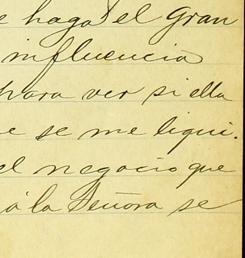 e haga el Gran
influencia
para ver si ella
e se me liqui.
el negocio que
á la Señora se